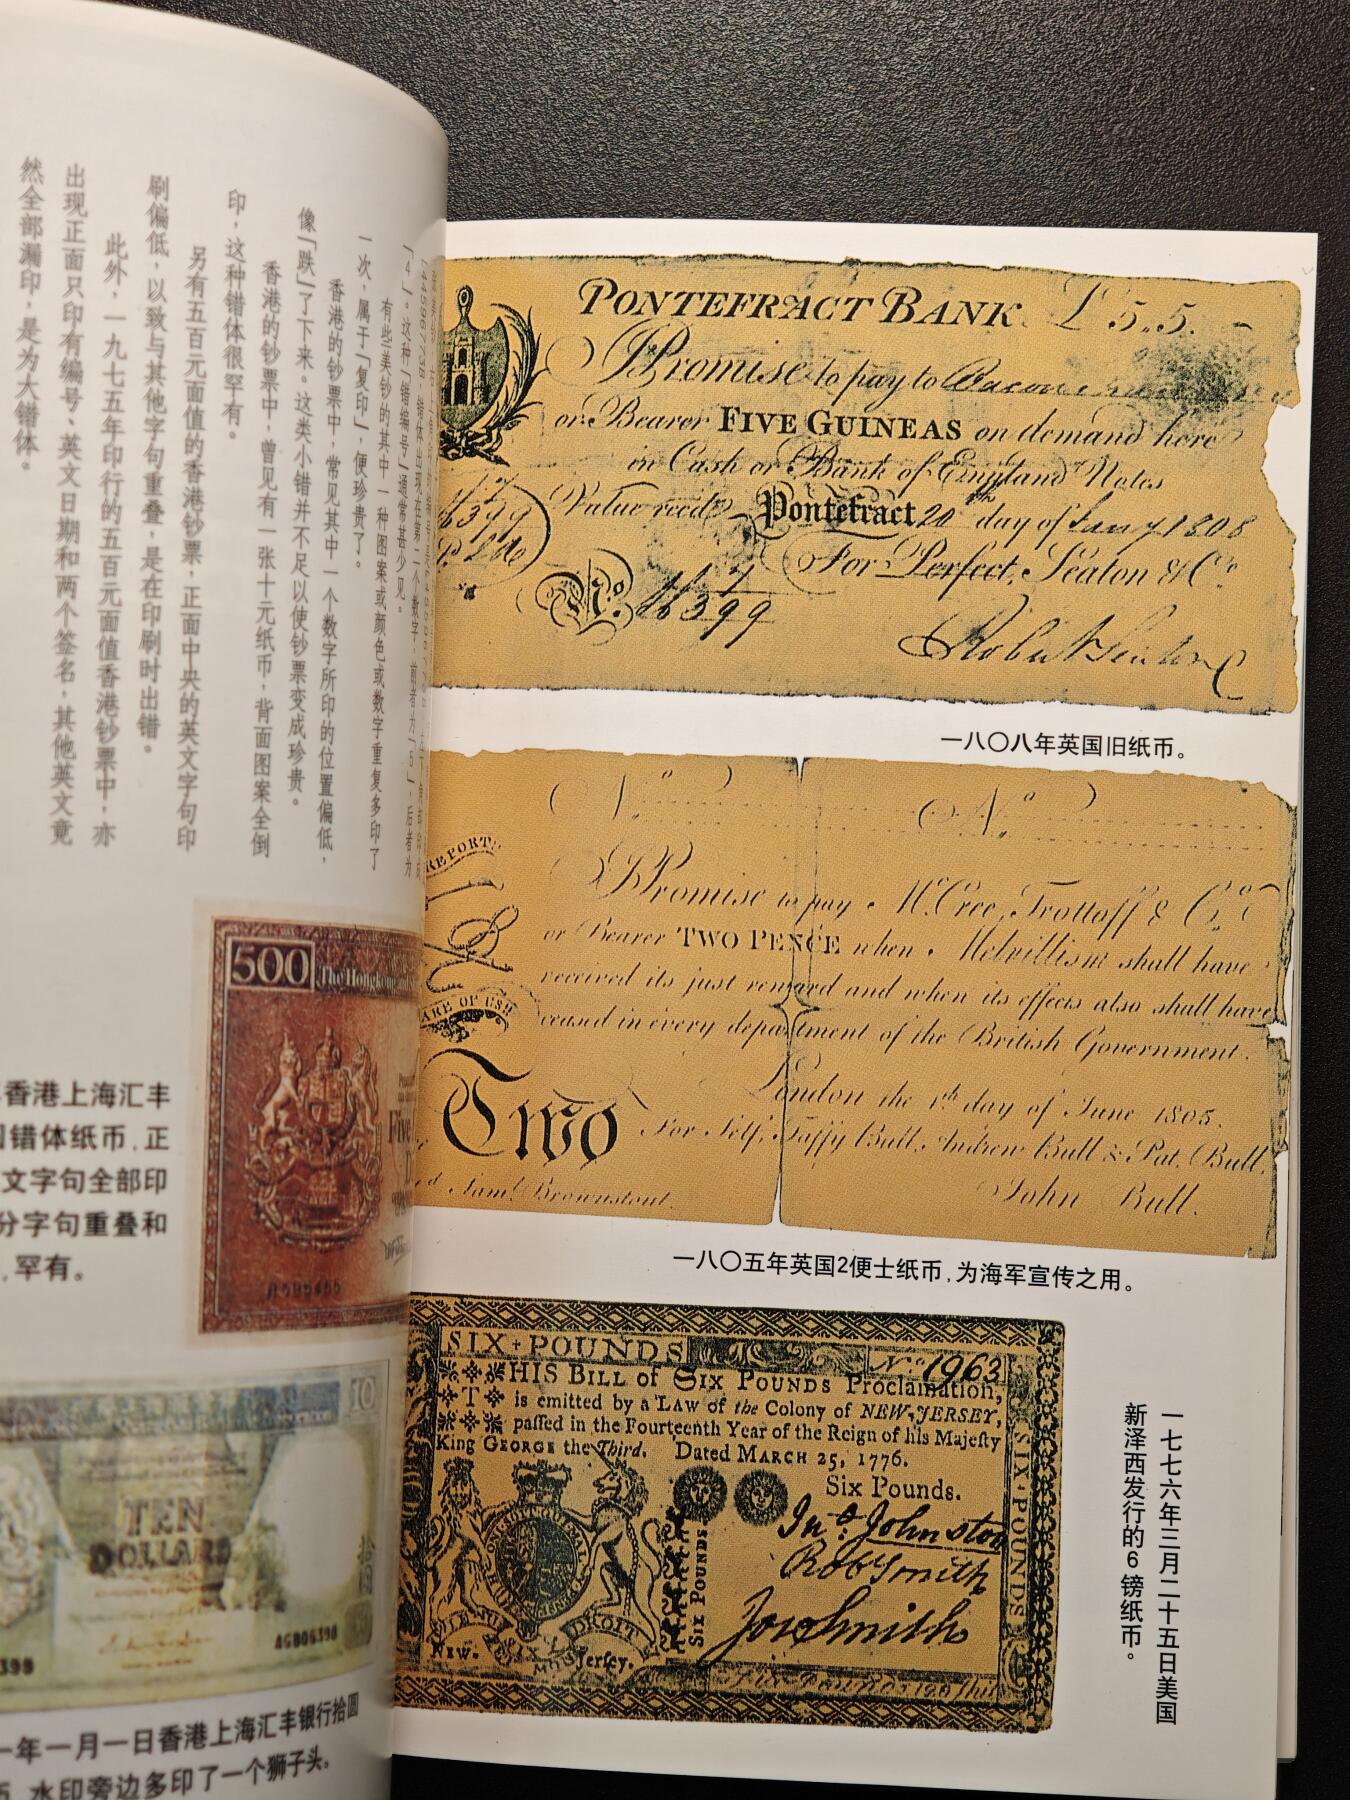 「4」。这种「错编号」通常甚少见。
有些美钞的其中一种图案或颜色或数字重复多印了
一次，属于「复印」，便珍贵了。
香港的钞票中，常见其中一个数字所印的位置偏低，
像「跌」了下来。这类小错并不足以使钞票变成珍贵。
香港的钞票中，曾见有一张十元纸币，背面图案全倒
印，这种错体很罕有。
另有五百元面值的香港钞票，正面中央的英文字句印
刷偏低，以致与其他字句重叠，是在印刷时出错。
此外，一九七五年印行的五百元面值香港钞票中，亦
出现正面只印有编号、英文日期和两个签名，其他英文竟
然全部漏印，是为大错体。
500
The Hongkong and
Five
香港上海汇丰
错体纸币，正
文字句全部印
分字句重叠和
，罕有。
10
TEN
DOLLARS
拾圆
AG806390
390
一年一月一日香港上海汇丰银行拾圆
水印旁边多印了一个狮子头。
PONTEFRACT BANK £5.5.-
I Promise to pay to
or Bearer FIVE GUINEAS on demand here
in Cash or Bank of England Notes
Value recd Pontefract 20th day of Jany 1808
For Perfect, Seaton & Co.
No.
一八〇八年英国旧纸币。
No No
I Promise to pay McCree, Trottoff & Co.
or Bearer TWO PENCE when Melvillism shall have
received its just reward and when its effects also shall have
ceased in every department of the British Government.
London the 1st day of June 1805.
Two For Self, Taffy Bull, Andrew Bull & Pat. Bull.
Saml. Brownstout. John Bull.
一八〇五年英国2便士纸币，为海军宣传之用。
SIX POUNDS No. 1963
THIS BILL of SIX POUNDS Proclamation,
is emitted by a LAW of the Colony of NEW-JERSEY,
passed in the Fourteenth Year of the Reign of his Majesty
King GEORGE the Third. Dated MARCH 25, 1776.
Six Pounds.
Jno. Johnston
Rob Smith
Jos Smith
SIX POUNDS
SIX POUNDS
DROIT
New. Jersey.
一七七六年三月二十五日美国
新泽西发行的6镑纸币。